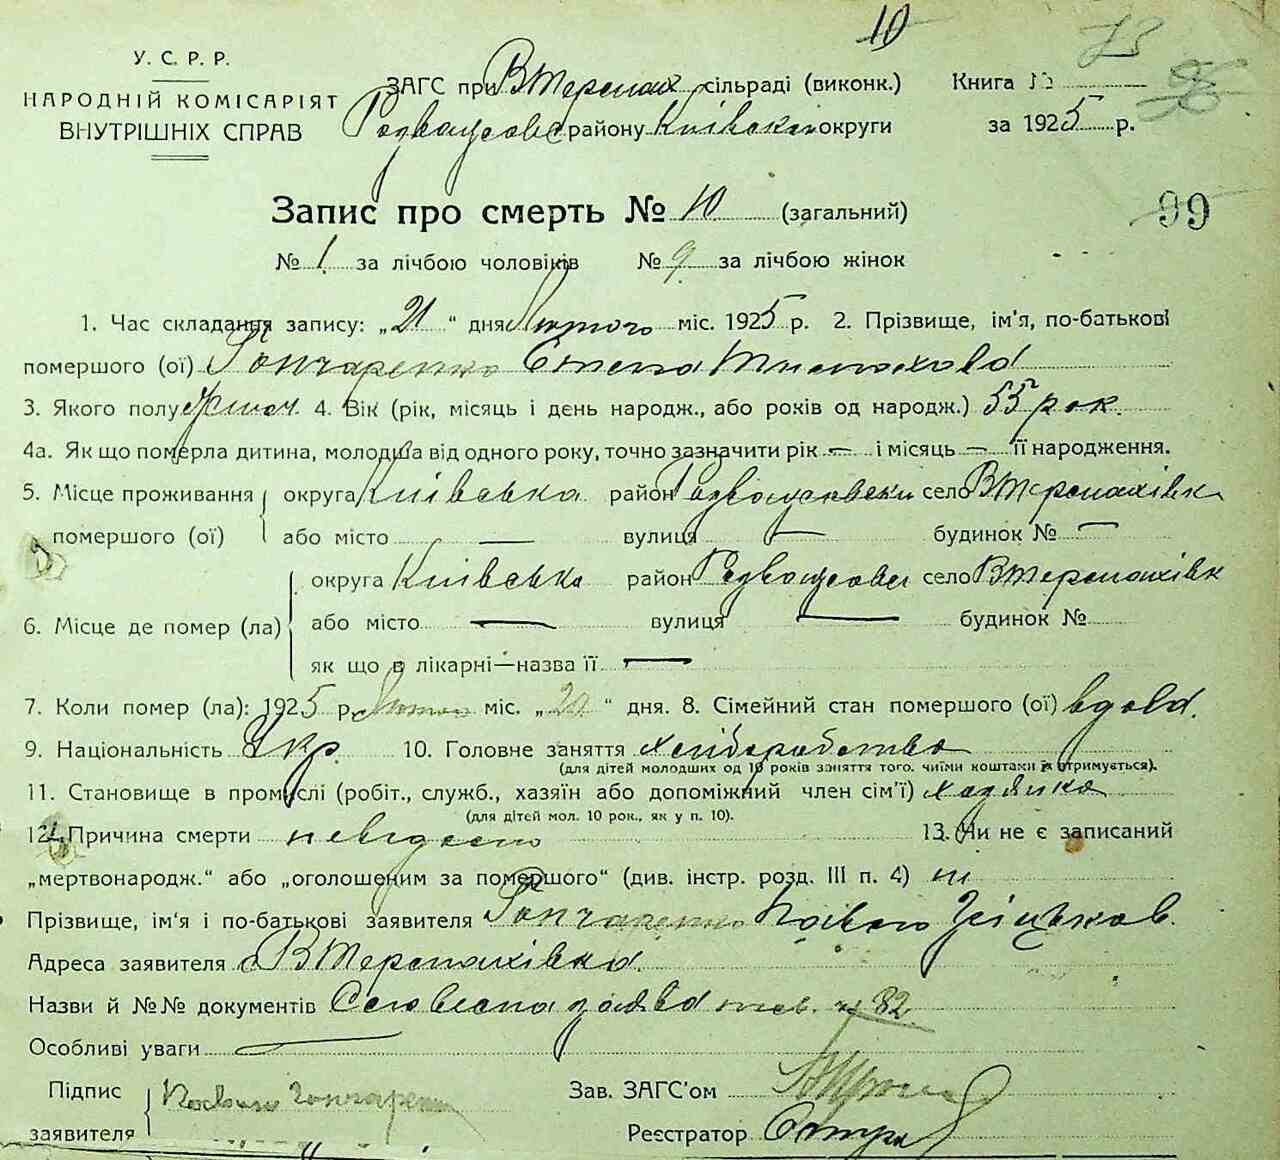 10
73
96
У. С. Р. Р.
НАРОДНІЙ КОМІСАРІЯТ
ВНУТРІШНІХ СПРАВ
ЗАГС при ВТерпих сільраді (виконк.)
району Київської округи
Книга №
за 1925 р.
Запис про смерть № 10 (загальний)
99
№ 1 за лічбою чоловіків № 9 за лічбою жінок
1. Час складання запису: „21“ дня Лютого міс. 1925 р. 2. Прізвище, ім'я, по-батькові
помершого (ої) Гончаренко
3. Якого полу 4. Вік (рік, місяць і день народж., або років од народж.) 55 рок.
4а. Як що померла дитина, молодша від одного року, точно зазначити рік — і місяць — її народження.
5. Місце проживання помершого (ої) округа Київська район село ВТерпихівка
або місто — вулиця — будинок № —
6. Місце де помер (ла) округа Київська район село ВТерпихівк
або місто — вулиця — будинок №
як що в лікарні—назва її —
7. Коли помер (ла): 1925 р. Лютого міс. „20“ дня. 8. Сімейний стан помершого (ої) вдова.
9. Національність Укр. 10. Головне заняття хліборобство
(для дітей молодших од 10 років заняття того, чиїми коштами їх отримується).
11. Становище в промислі (робіт., служб., хазяїн або допоміжний член сім'ї) хазяйка
(для дітей мол. 10 рок., як у п. 10).
12. Причина смерти невідомо 13. Чи не є записаний
„мертвонародж.“ або „оголошеним за помершого“ (див. інстр. розд. III п. 4) ні
Прізвище, ім'я і по-батькові заявителя Гончаренко Павло Грицьков.
Адреса заявителя с ВТерпихівка.
Назви й №№ документів Словесна заява 82
Особливі уваги —
Підпис заявителя Павло Гончаренко
Зав. ЗАГС'ом
Реєстратор